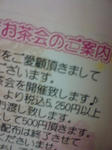 お茶会のご案内
をご愛顧頂きまして
ございます。
茶会を開催致します♪
より税込5,250円以上
お渡し致します。
して500円頂きます
配布は終了させて